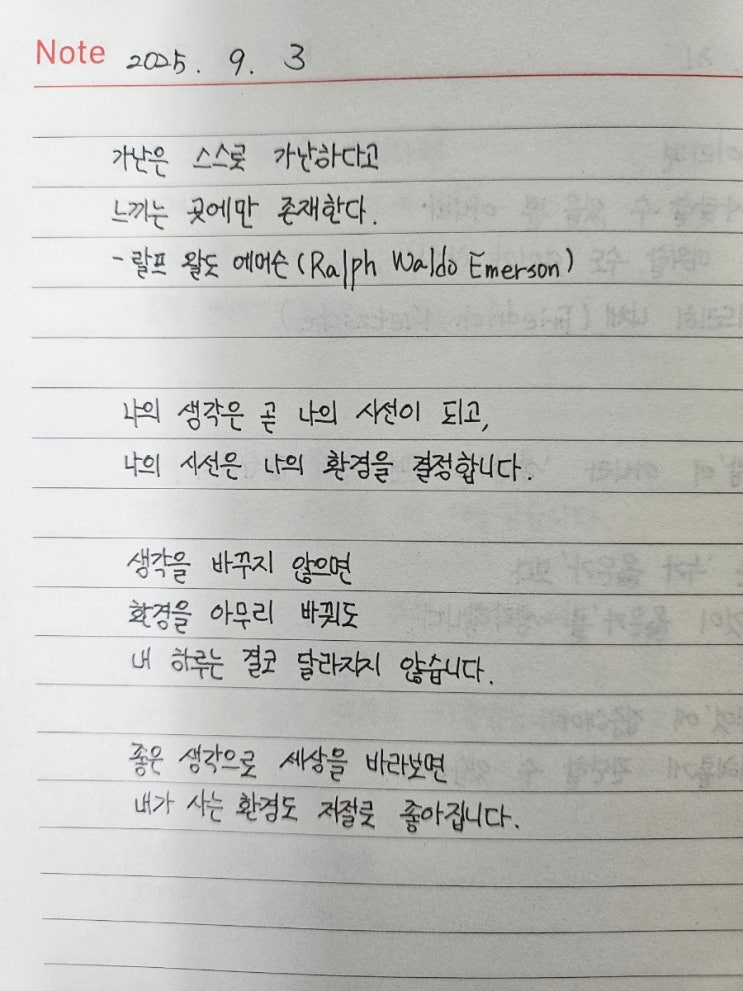 Note 2025. 9. 3
가난은 스스로 가난하다고
느끼는 곳에만 존재한다.
- 랄프 왈도 에머슨 (Ralph Waldo Emerson)
나의 생각은 곧 나의 시선이 되고,
나의 시선은 나의 환경을 결정합니다.
생각을 바꾸지 않으면
환경을 아무리 바꿔도
내 하루는 결코 달라지지 않습니다.
좋은 생각으로 세상을 바라보면
내가 사는 환경도 저절로 좋아집니다.